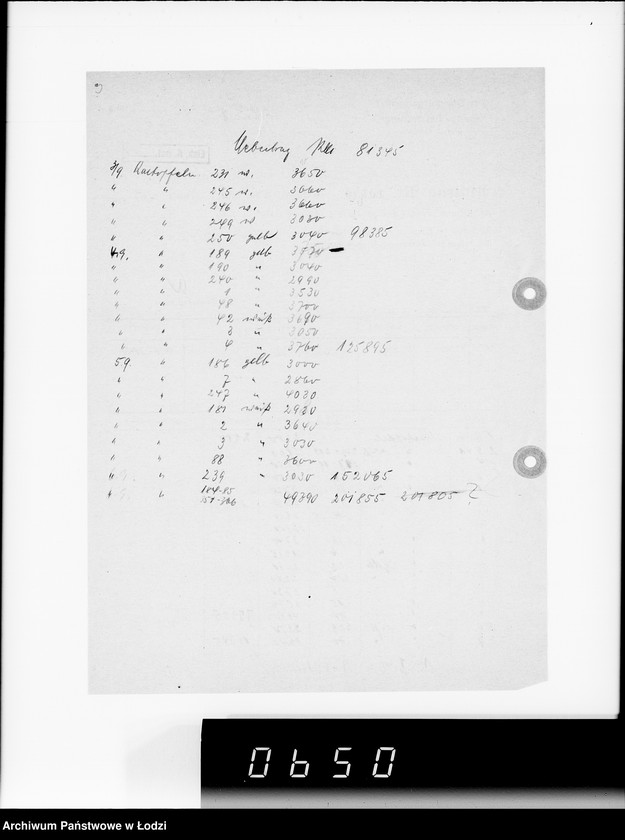 Uebertrag Kilo 81345
3/9 Kartoffeln 231 w. 3650
" " 245 w. 3660
" " 246 w. 3660
" " 249 w 3030
" " 250 gelb 3040 98385
4.9. " 189 gelb 3770
" " 190 " 3040
" " 240 " 2990
" " 1 " 3530
" " 48 " 3700
" " 42 weiß 3690
" " 3 " 3050
" " 4 " 3760 125895
5.9. " 186 gelb 3000
" " 7 " 2860
" " 247 " 4030
" " 181 weiß 2930
" " 2 " 3640
" " 3 " 3030
" " 88 " 3600
" " 239 " 3030 152065
" " 184-85 49790 201855 201805 ?
0650
Archiwum Państwowe w Łodzi